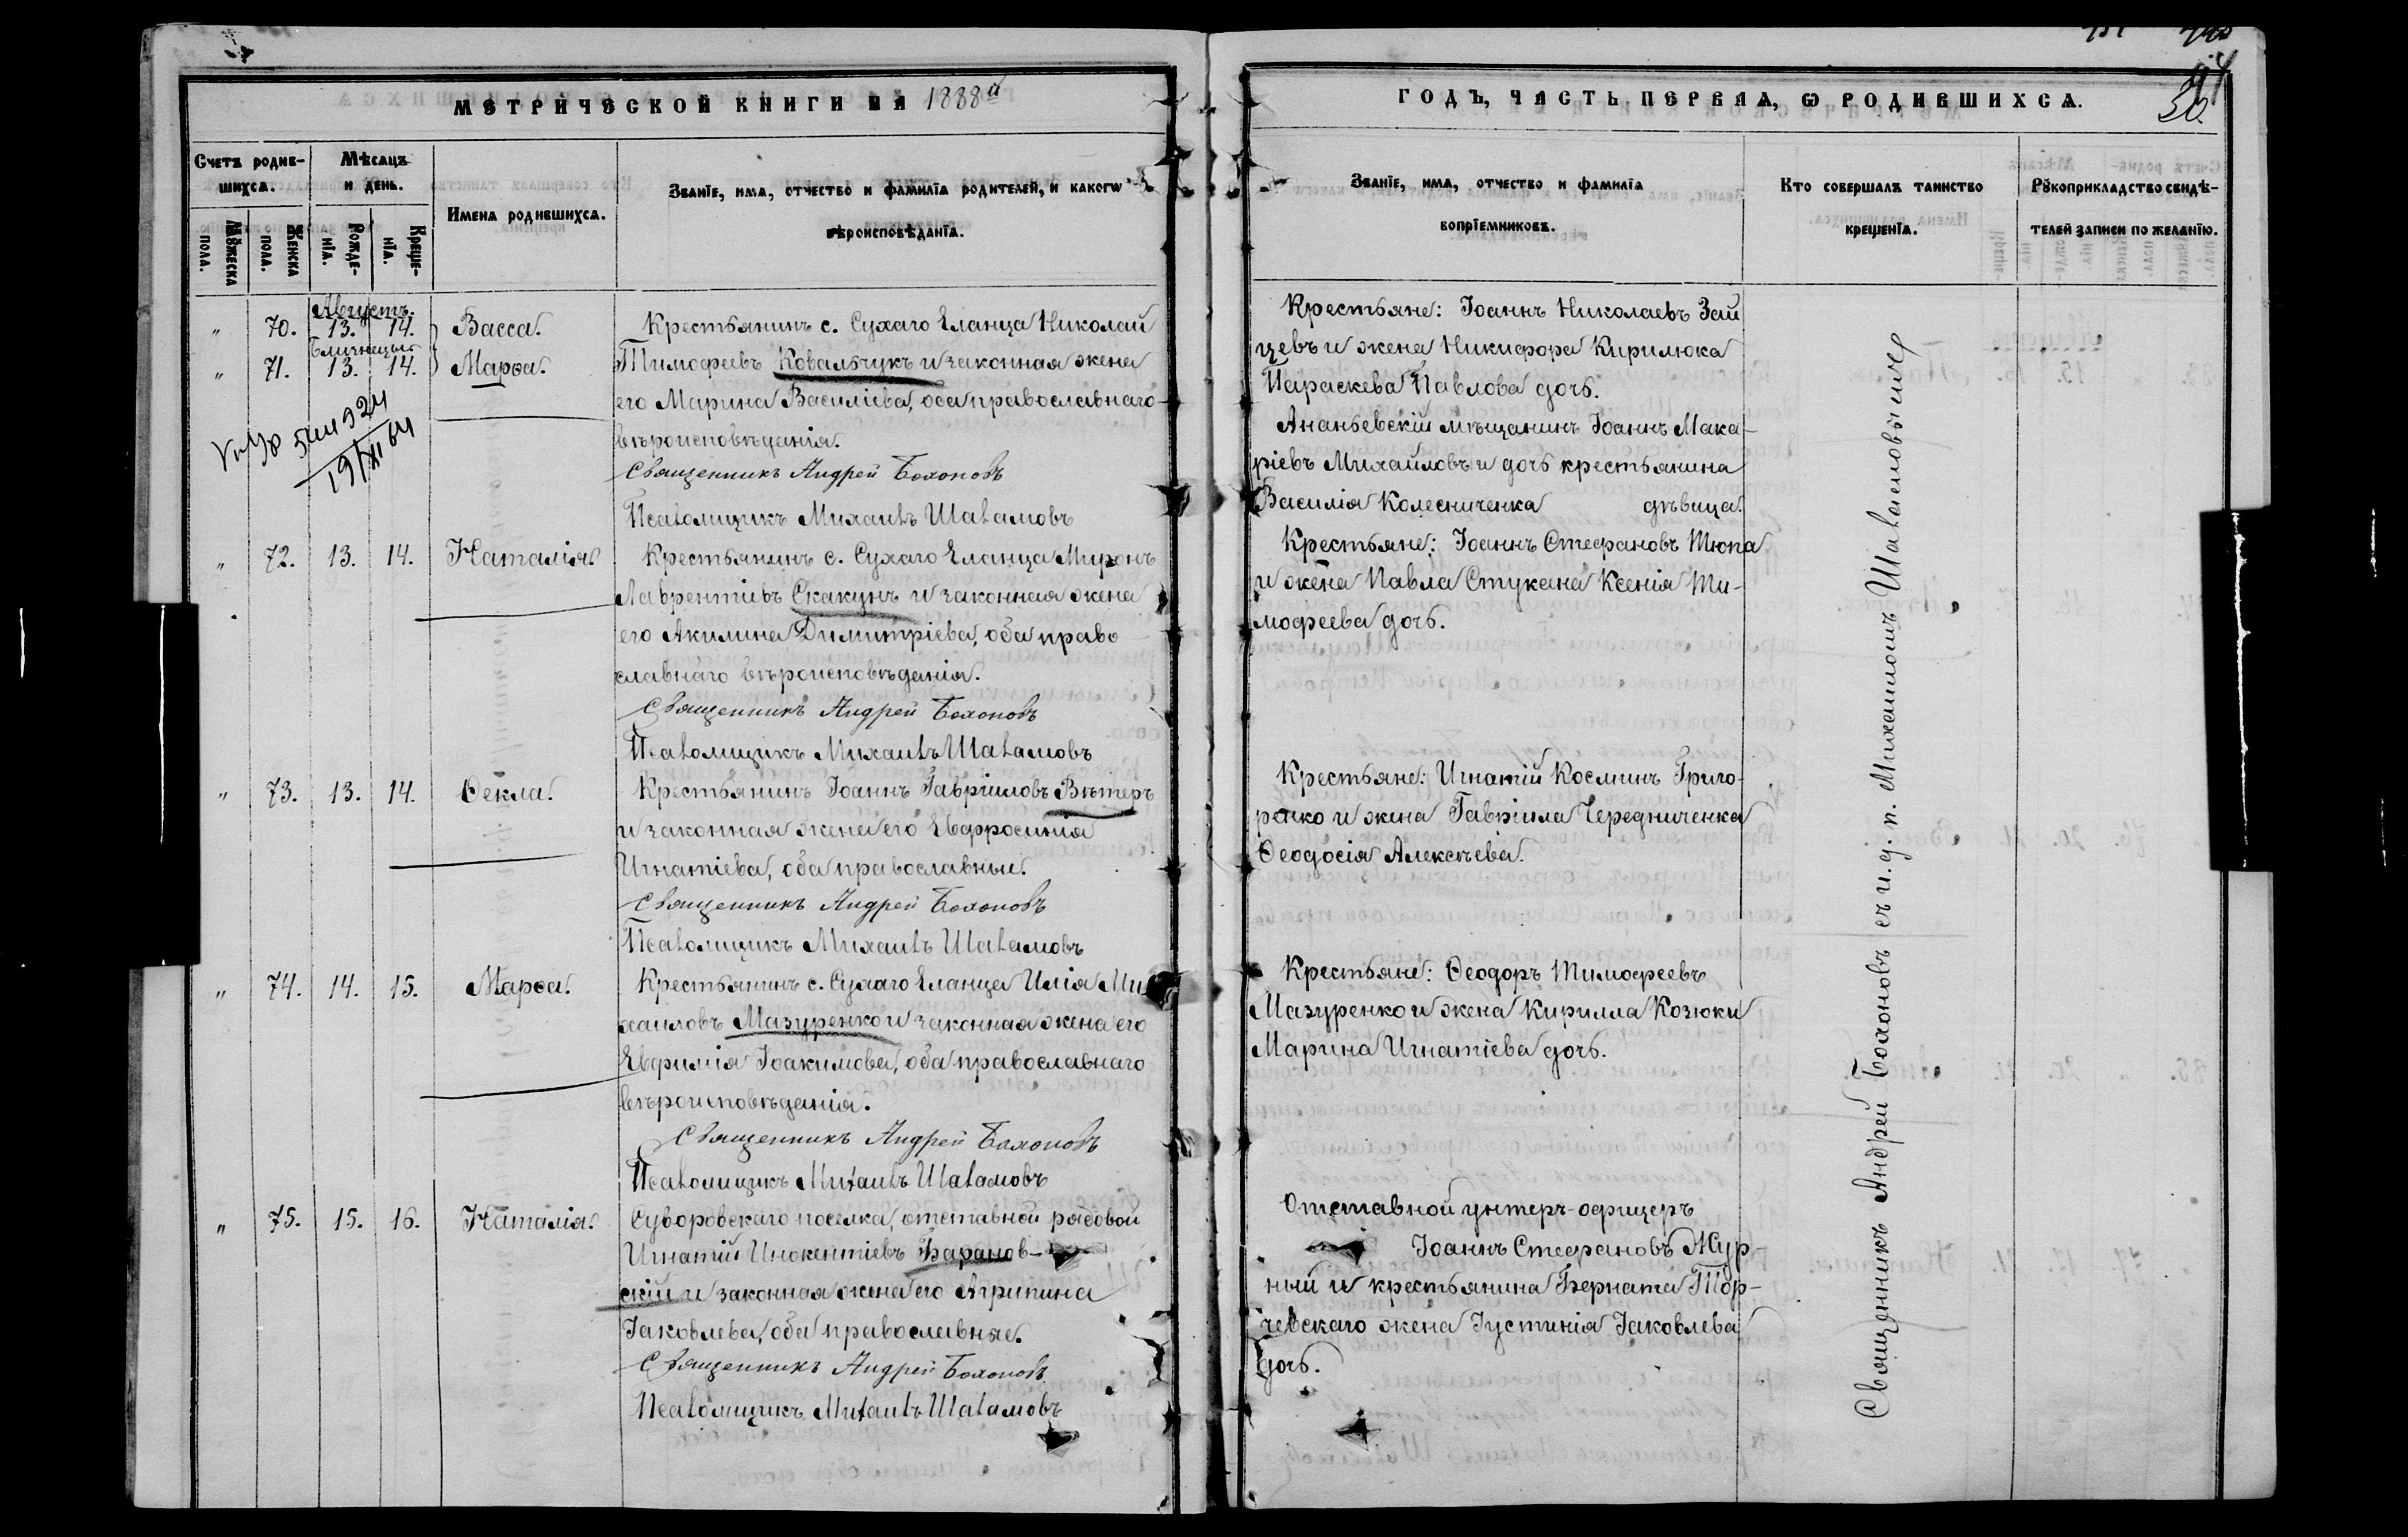 МЕТРИЧЕСКОЙ КНИГИ НА 1888й
Счетъ родив-
шихся.
Мѣсяцъ
и день.
Имена родившихся.
Званіе, имя, отчество и фамилія родителей, и какогѡ
вѣроисповѣданія.
Мꙋжеска
пола.
Женска
пола.
Рожде-
нія.
Креще-
нія.
Августъ.
" 70. 13. 14. Васса.
Близнецы
" 71. 13. 14. Марѳа.
Крестьянинъ с. Сухаго Еланца Николай
Тимофеевъ Ковальчукъ и законная жена
его Марина Василіева, оба православнаго
вѣроисповѣданія.
Священникъ Андрей Бохоновъ
Псаломщикъ Михаилъ Шаламовъ
19/XI 64
" 72. 13. 14. Наталія.
Крестьянинъ с. Сухаго Еланца Миронъ
Лаврентіевъ Скакунъ и законная жена
его Акилина Димитріева, оба право
славнаго вѣроисповѣданія.
Священникъ Андрей Бохоновъ
Псаломщикъ Михаилъ Шаламовъ
" 73. 13. 14. Ѳекла.
Крестьянинъ Іоаннъ Гавріиловъ Вѣтеръ
и законная жена его Евфросинія
Игнатіева, оба православные.
Священникъ Андрей Бохоновъ
Псаломщикъ Михаилъ Шаламовъ
" 74. 14. 15. Марѳа.
Крестьянинъ с. Сухаго Еланца Илія Ми
хаиловъ Мазуренко и законная жена его
Евфимія Іоакимова, оба православнаго
вѣроисповѣданія.
Священникъ Андрей Бохоновъ
Псаломщикъ Михаилъ Шаламовъ
" 75. 15. 16. Наталія.
Суворовскаго поселка, отставной рядовой
Игнатій Инокентіевъ Баранов-
скій и законная жена его Агрипина
Іаковлева, оба православные.
Священникъ Андрей Бохоновъ
Псаломщикъ Михаилъ Шаламовъ
ГОДЪ, ЧАСТЬ ПЕРВАЯ, Ѡ РОДИВШИХСЯ.
50.
Званіе, имя, отчество и фамилія
вопріемниковъ.
Кто совершалъ таинство
крещенія.
Рꙋкоприкладство свидѣ-
телей записи по желанію.
Крестьяне: Іоаннъ Николаевъ Зай
цевъ и жена Никифора Кирилюка
Параскева Павлова дочь.
Ананьевскій мѣщанинъ Іоаннъ Мака-
ріевъ Михайловъ и дочь крестьянина
Василія Колесниченка дѣвица.
Крестьяне: Іоаннъ Стефановъ Тюпа
и жена Павла Стукана Ксенія Ти-
мофеева дочь.
Крестьяне: Игнатій Косминъ Григо-
ренко и жена Гавріила Чередниченка
Ѳеодосія Алексѣева.
Крестьяне: Ѳеодоръ Тимофеевъ
Мазуренко и жена Кирилла Козюки
Марина Игнатіева дочь.
Отставной унтеръ-офицеръ
Іоаннъ Стефановъ Жур-
ный и крестьянина Берната Тор-
чевскаго жена Іустинія Іаковлева
дочь.
Священникъ Андрей Бохоновъ съ и. д. п. Михаиломъ Шаламовымъ